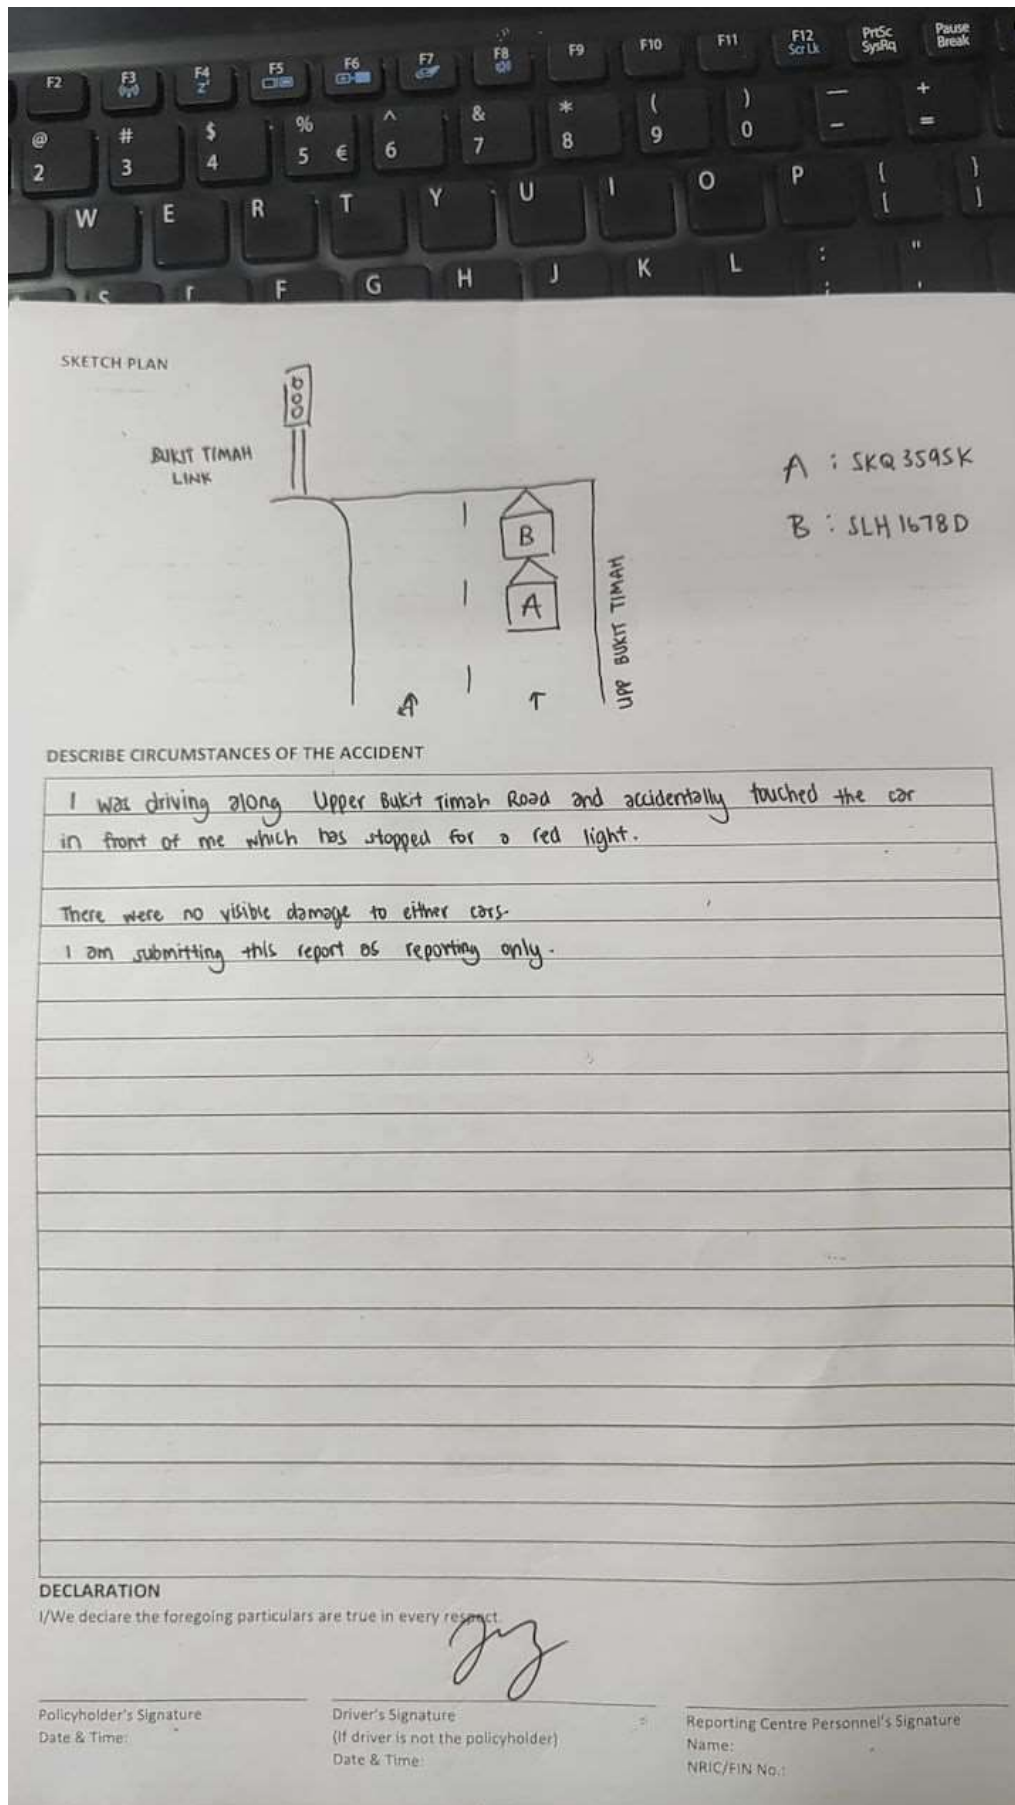 F2 F3 F4 F5 F6 F7 F8 F9 F10 F11 F12 PrtSc Pause
Scr Lk SysRq Break
@ # $ % ^ & * ( ) — +
2 3 4 5 € 6 7 8 9 0 - =
W E R T Y U I O P { }
[ ]
F G H J K L : "
; '
SKETCH PLAN
BUKIT TIMAH
LINK
A : SKQ3595K
B : SLH1678D
B
A
UPP BUKIT TIMAH
DESCRIBE CIRCUMSTANCES OF THE ACCIDENT
I was driving along Upper Bukit Timah Road and accidentally touched the car
in front of me which has stopped for a red light.
There were no visible damage to either cars.
I am submitting this report as reporting only.
DECLARATION
I/We declare the foregoing particulars are true in every respect.
Policyholder's Signature
Date & Time:
Driver's Signature
(If driver is not the policyholder)
Date & Time:
Reporting Centre Personnel's Signature
Name:
NRIC/FIN No.: